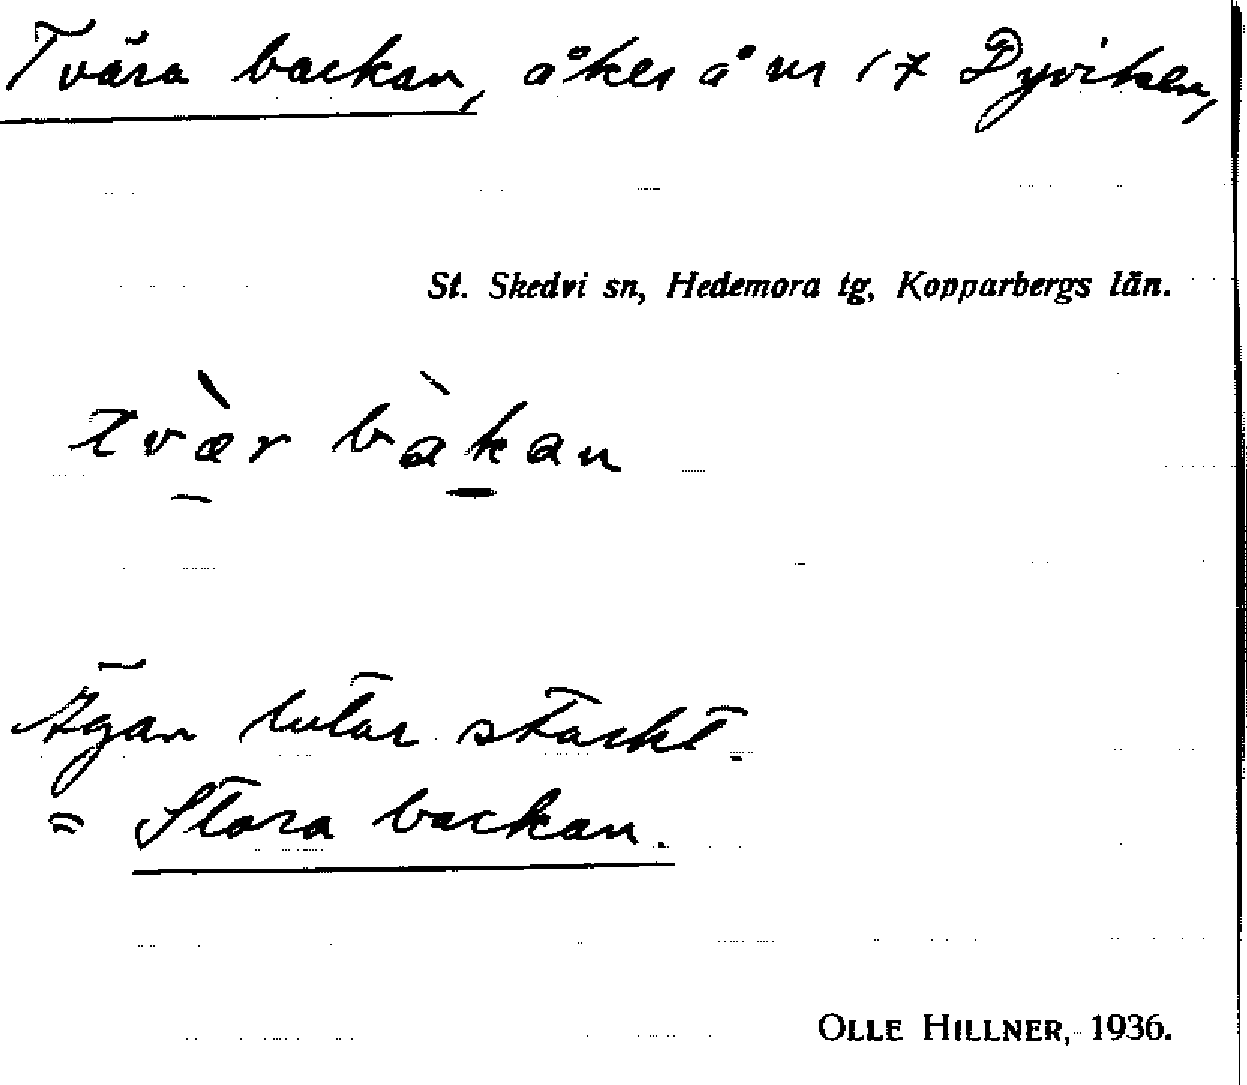 Tvära backan, åker å nr 17 Dyviken,
St. Skedvi sn, Hedemora tg, Kopparbergs län.
tvær bakan
Ägan lutar starkt.
= Stora backan.
OLLE HILLNER, 1936.